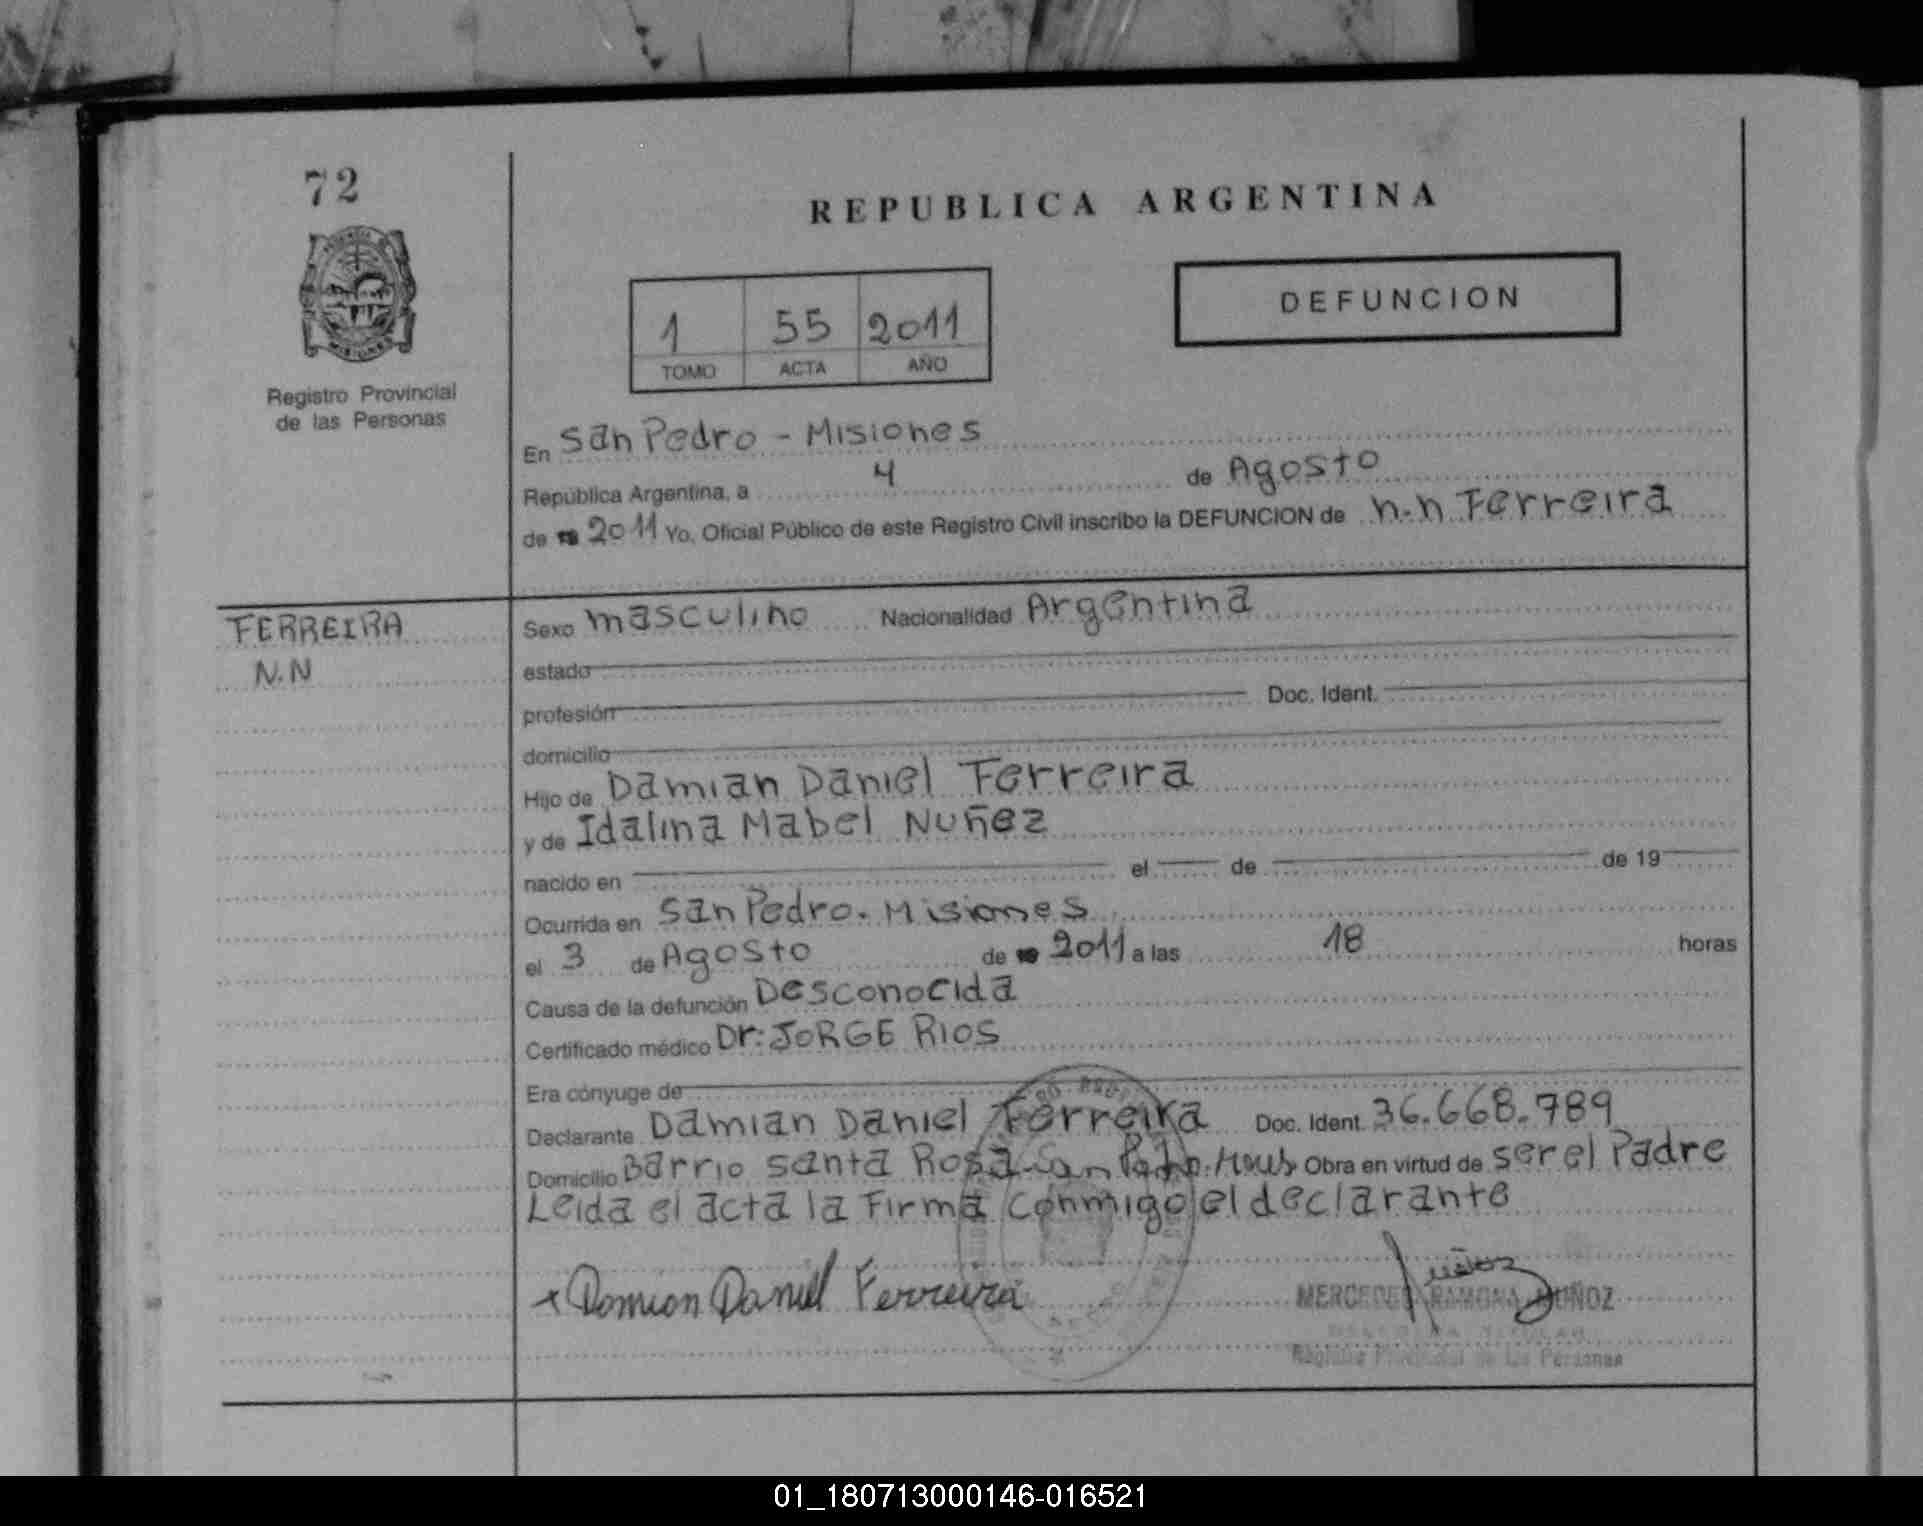 72
REPUBLICA ARGENTINA
PROVINCIA DE
MISIONES
Registro Provincial
de las Personas
1 55 2011
TOMO ACTA AÑO
DEFUNCION
En San Pedro - Misiones
República Argentina, a 4 de Agosto
de 2011 Yo, Oficial Público de este Registro Civil inscribo la DEFUNCION de n.n Ferreira
FERREIRA
N.N
Sexo masculino Nacionalidad Argentina
estado
profesión Doc. Ident.
domicilio
Hijo de Damian Daniel Ferreira
y de Idalina Mabel Nuñez
nacido en el de de 19
Ocurrida en San Pedro. Misiones
el 3 de Agosto de 2011 a las 18 horas
Causa de la defunción Desconocida
Certificado médico Dr: JORGE RIOS
Era cónyuge de
Declarante Damian Daniel Ferreira Doc. Ident. 36.668.789
Domicilio Barrio santa Rosa San Pedro. Obra en virtud de ser el Padre
Leida el acta la Firma conmigo el declarante
x Damian Daniel Ferreira
MERCEDES RAMONA MUÑOZ
Registro Provincial de las Personas
01_180713000146-016521